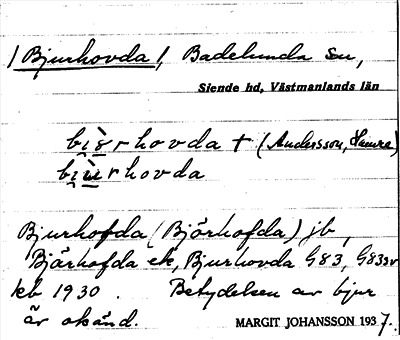 / Bjurhovda /, Badelunda sn,
Siende hd, Västmanlands län
bi̯ò̱rhovda + (Andersson, Hamre)
bi̯ù̱rhovda
Bjurhofda (Björhofda) jb,
Bjärhofda ek, Bjurhovda G83, G83sv
kb 1930. Betydelsen av bjur
är okänd.
MARGIT JOHANSSON 1937.